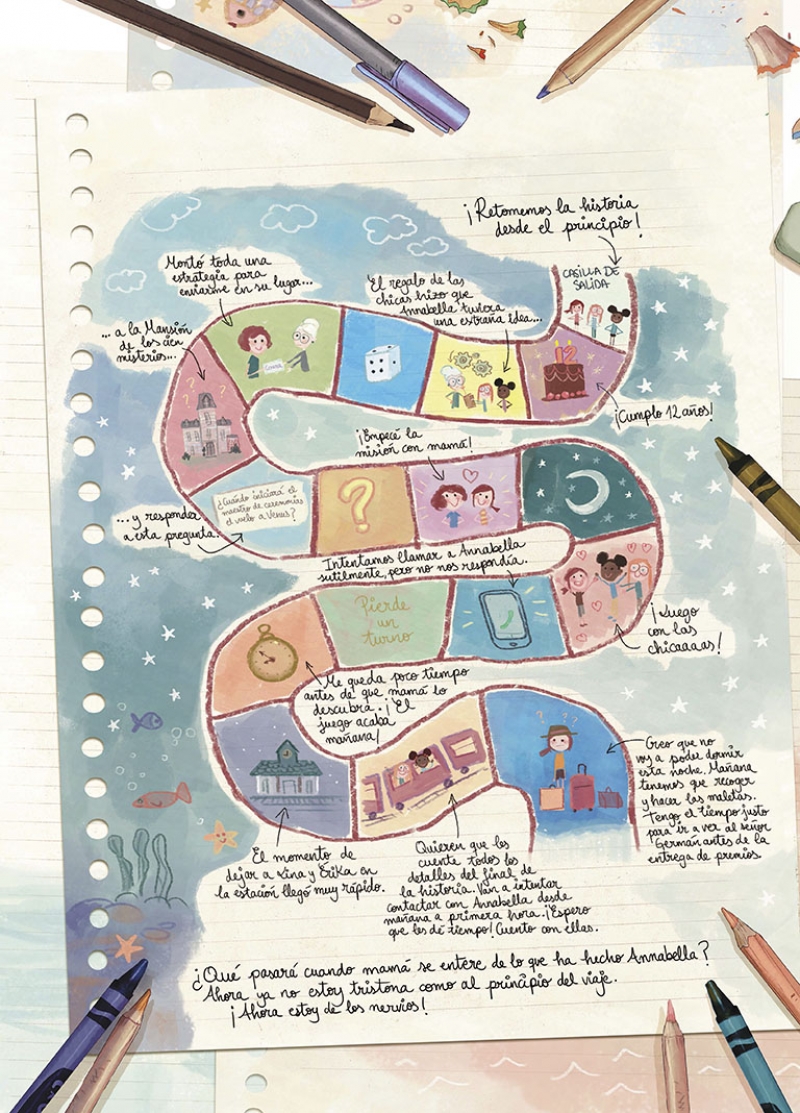 ¡Retomemos la historia
desde el principio!
CASILLA DE
SALIDA
12
¡Cumplo 12 años!
El regalo de las
chicas hizo que
Annabella tuviera
una extraña idea...
Montó toda una
estrategia para
enviarme en su lugar...
... a la Mansión
de los cien
misterios...
... y responder
a esta pregunta.
¿Cuándo iniciará el
maestro de ceremonias
el vuelo a Venus?
?
¡Empecé la
misión con mamá!
¡Luego
con las
chicaaaas!
Intentamos llamar a Annabella
sutilmente, pero no nos respondía.
Pierde
un
turno
Me queda poco tiempo
antes de que mamá lo
descubra. ¡El
juego acaba
mañana!
El momento de
dejar a Lina y Erika en
la estación llegó muy rápido.
Quieren que les
cuente todos los
detalles del final de
la historia. Van a intentar
contactar con Annabella desde
mañana a primera hora. ¡Espero
que les dé tiempo! Cuento con ellas.
Creo que no
voy a poder dormir
esta noche. Mañana
tenemos que recoger
y hacer las maletas.
Tengo el tiempo justo
para ir a ver al señor
Germán antes de la
entrega de premios
¿Qué pasará cuando mamá se entere de lo que ha hecho Annabella?
Ahora ya no estoy tristona como al principio del viaje.
¡Ahora estoy de los nervios!